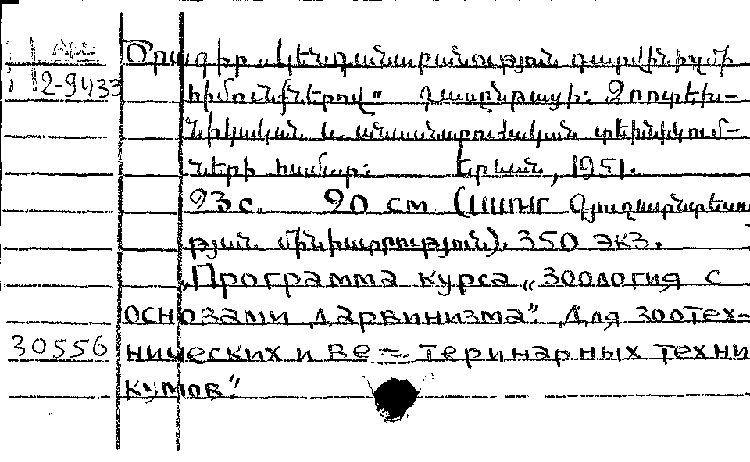 Ծրագիր „կենդանաբանություն դարվինիզմի
2-9433
հիմունքներով" դասընթացի: Զոոտեխ-
նիկական և անասնաբուժական տեխնիկում-
ների համար: Երևան, 1951.
23 с. 20 см (ՍՍՌՄ Գյուղատնտեսու
թյան մինիստրություն). 350 экз.
„Программа курса „зоология с
основами дарвинизма". Для зоотех-
30556
нических и ве = теринарных техни
кумов"